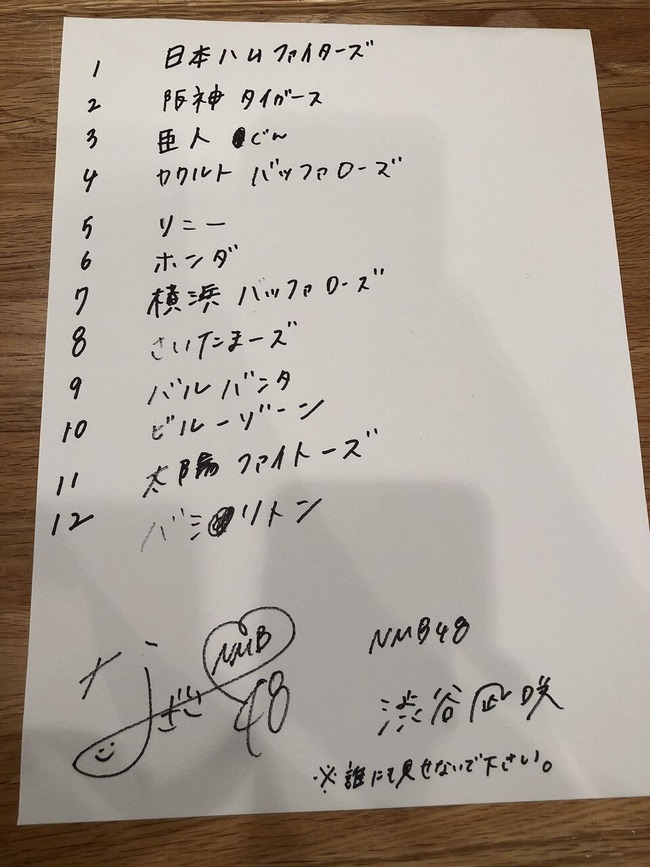 1 日本ハムファイターズ
2 阪神 タイガース
3 臣人 じん
4 ヤクルト バッファローズ
5 ソニー
6 ホンダ
7 横浜 バッファローズ
8 さいたまーズ
9 バルバンタ
10 ビルーゾーン
11 太陽 ファイトーズ
12 バミリトン
NMB
48
NMB48
渋谷凪咲
※誰にも見せないで下さい。